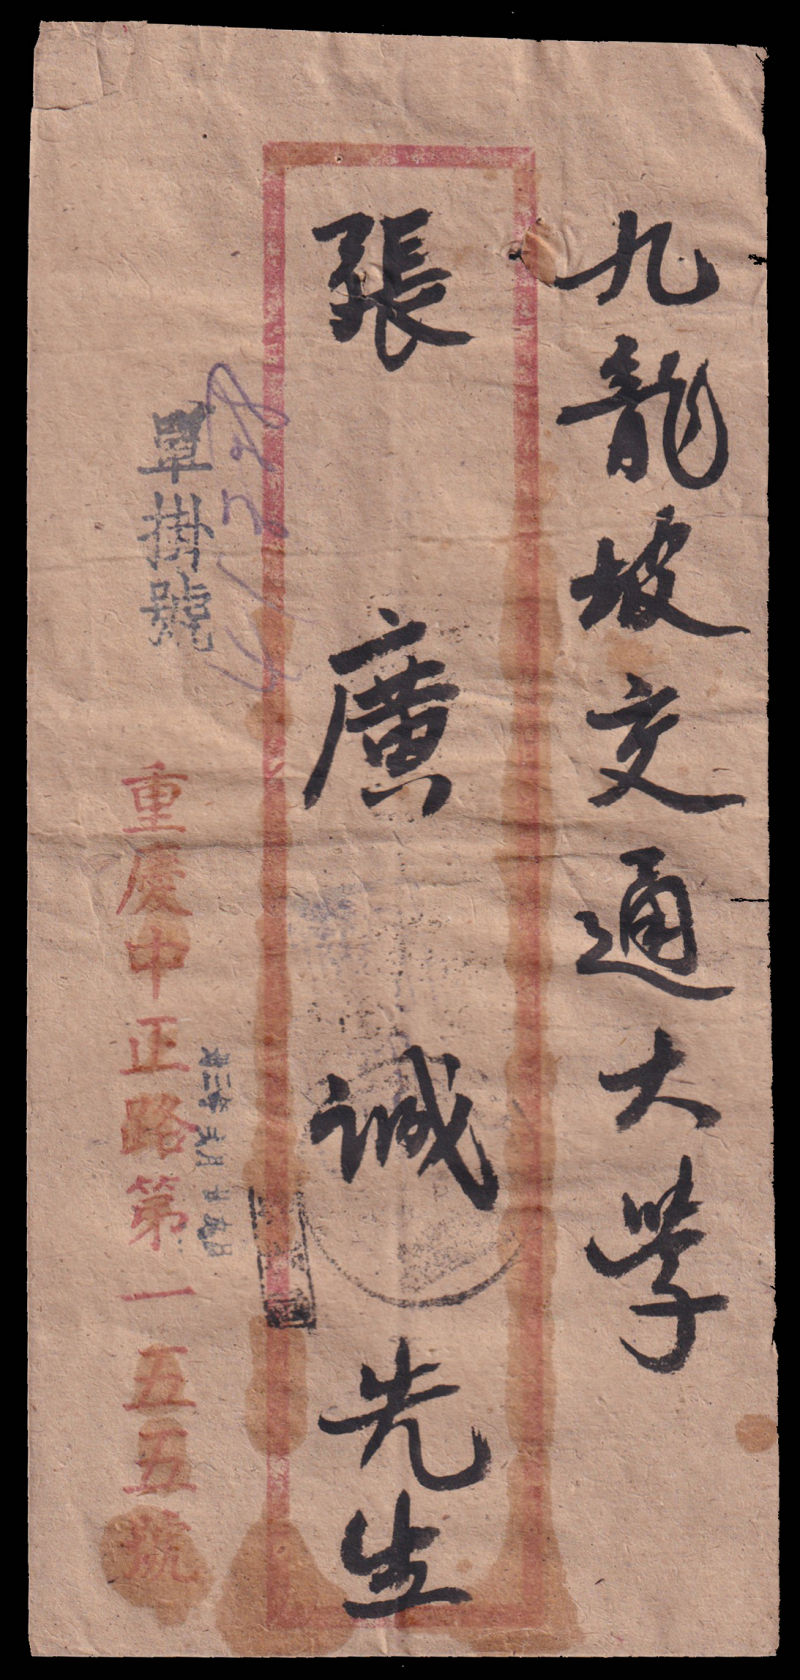 九龍坡交通大學
張廣誠先生
單掛號
重慶中正路第一五五號